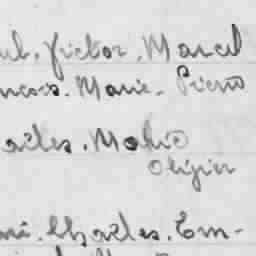 ul. Victor. Marcel
ncois. Marie. Pierre
arles. Mahé
Olivier
ri. Charles. Em-